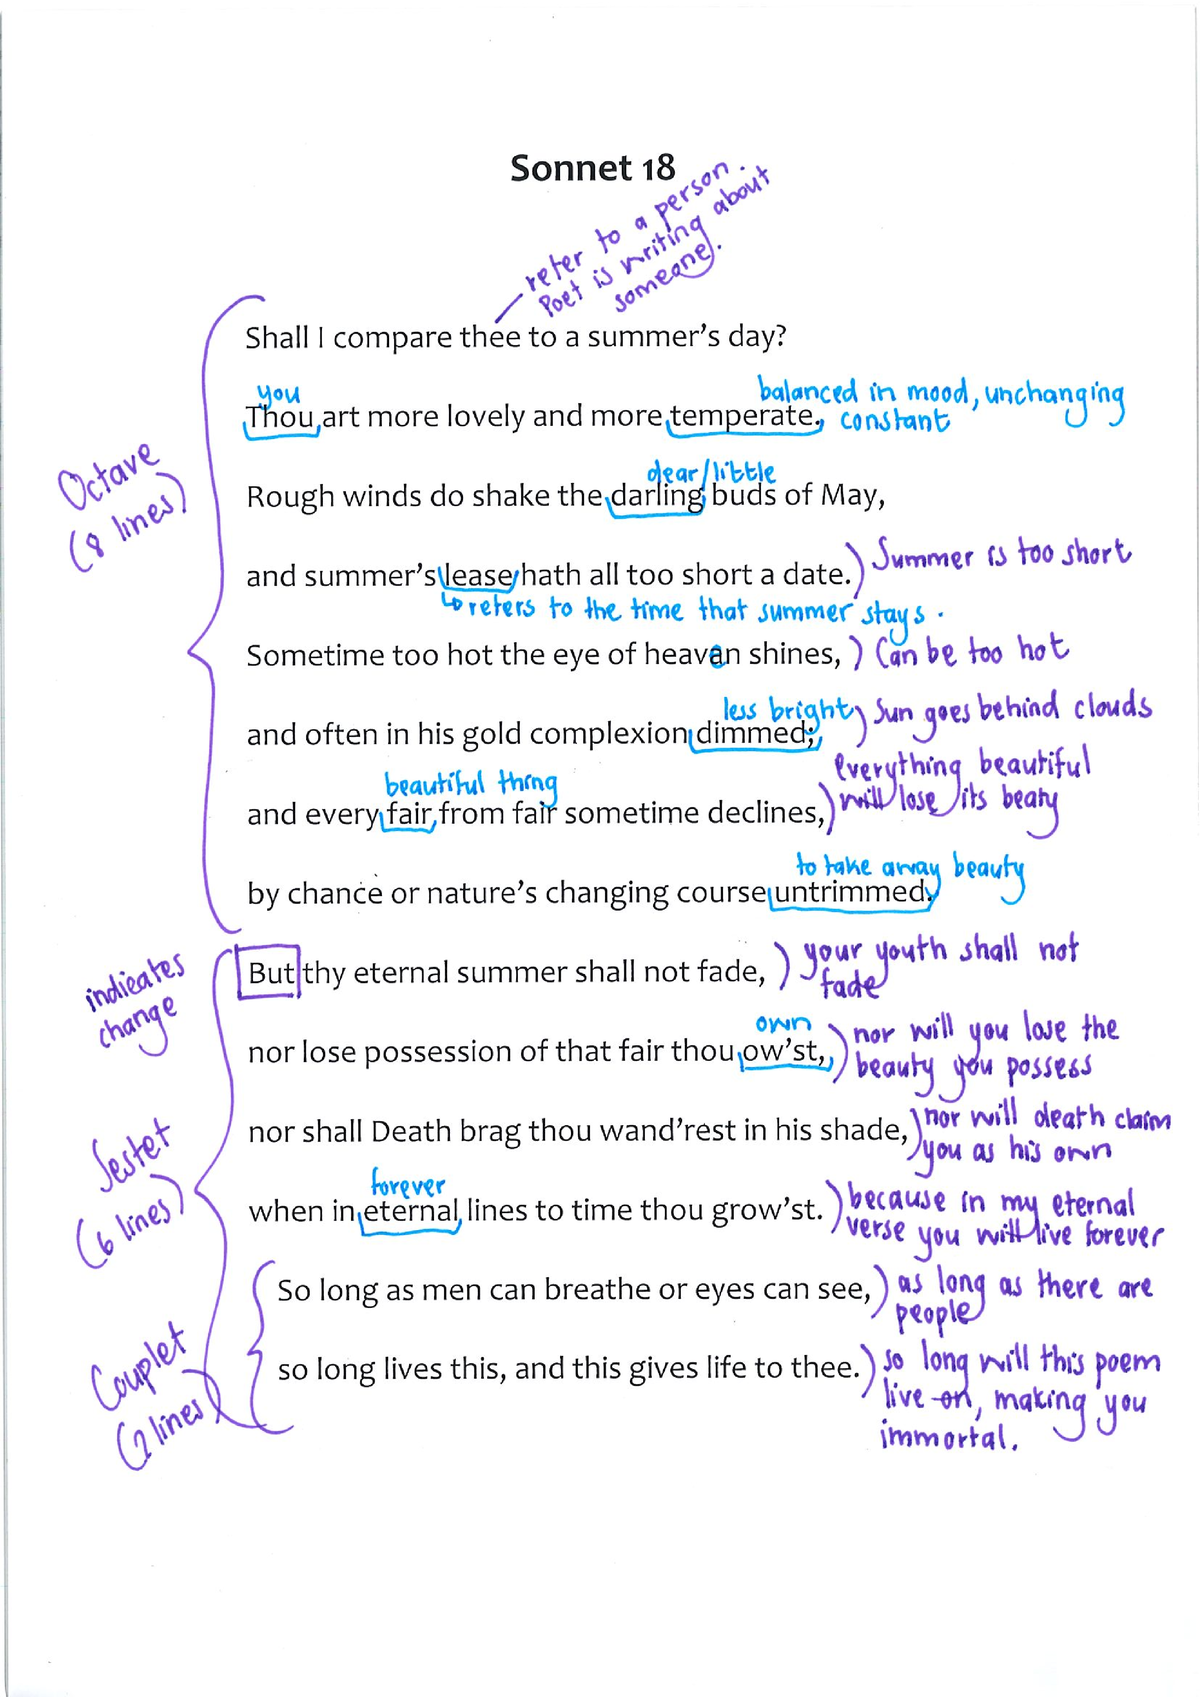 Sonnet 18
refer to a person.
Poet is writing about
someone.
Shall I compare thee to a summer's day?
you
balanced in mood, unchanging
Thou art more lovely and more temperate.
constant
Octave
(8 lines)
dear/little
Rough winds do shake the darling buds of May,
and summer's lease hath all too short a date.) Summer is too short
↳ refers to the time that summer stays.
Sometime too hot the eye of heaven shines, ) Can be too hot
less bright
and often in his gold complexion dimmed; ) Sun goes behind clouds
beautiful thing
and every fair from fair sometime declines, ) everything beautiful
will lose its beaty
to take away beauty
by chance or nature's changing course untrimmed.
indicates
change
But thy eternal summer shall not fade, ) your youth shall not
fade
own
nor lose possession of that fair thou ow'st, ) nor will you lose the
beauty you possess
Sestet
(6 lines)
nor shall Death brag thou wand'rest in his shade, ) nor will death claim
you as his own
forever
when in eternal lines to time thou grow'st. ) because in my eternal
verse you will live forever
Couplet
(2 lines)
So long as men can breathe or eyes can see, ) as long as there are
people
so long lives this, and this gives life to thee. ) so long will this poem
live on, making you
immortal.